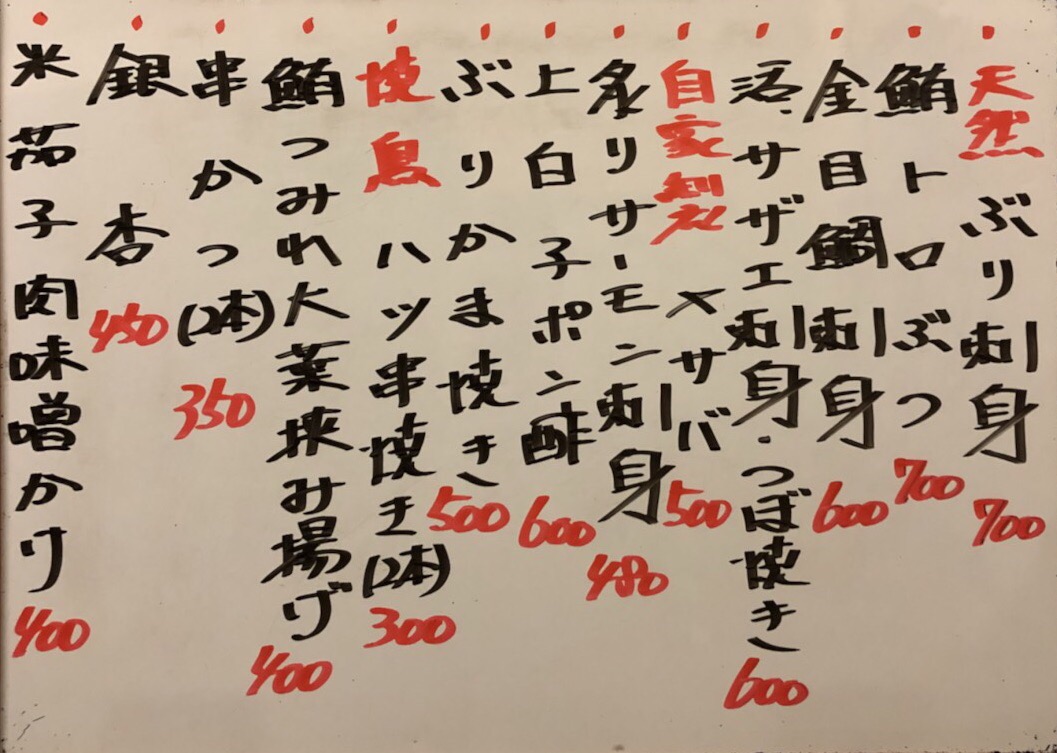 天然ぶり刺身 700
鮪トロぶつ 700
金目鯛刺身 600
活サザエ刺身・つぼ焼き 600
自家製〆サバ 500
炙りサーモン刺身 480
上白子ポン酢 600
ぶりかま焼き 500
焼鳥ハツ串焼き(2本) 300
鮪つみれ大葉挟み揚げ 400
串かつ(2本) 350
銀杏 450
米茄子肉味噌かけ 400